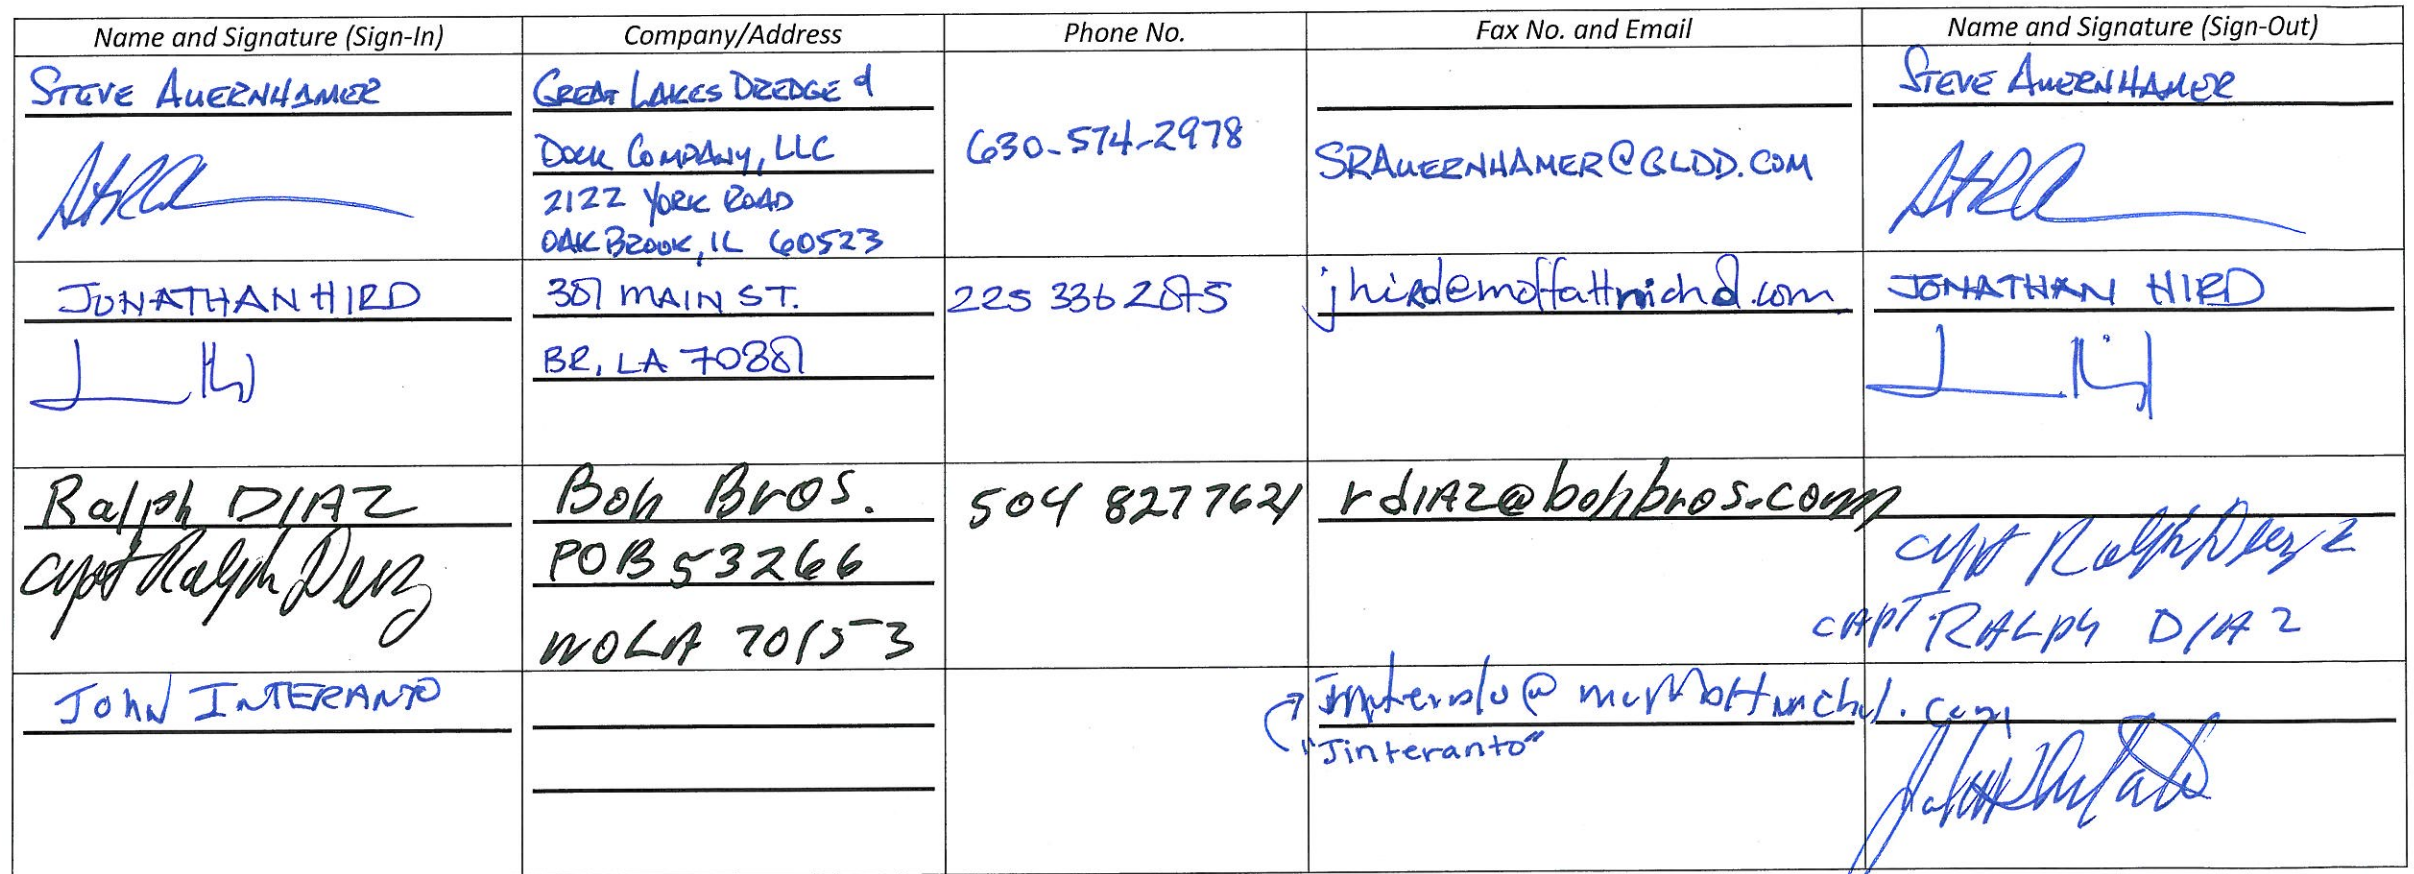 Name and Signature (Sign-In) Company/Address Phone No. Fax No. and Email Name and Signature (Sign-Out)
STEVE AUERNHAMER
GREAT LAKES DREDGE &
DOCK COMPANY, LLC
2122 YORK ROAD
OAK BROOK, IL 60523
630-574-2978
SRAUERNHAMER@GLDD.COM
STEVE AUERNHAMER
JONATHAN HIRD
301 MAIN ST.
BR, LA
225 336 2075
JONATHAN HIRD
Ralph DIAZ
Capt Ralph Diaz
Boh Bros.
POB 53266
NOLA 70153
504 827 7621
rdIAZ@bohbros.com
Capt Ralph Diaz
CAPT RALPH DIAZ
JOHN INTERANTO
"Jinteranto"